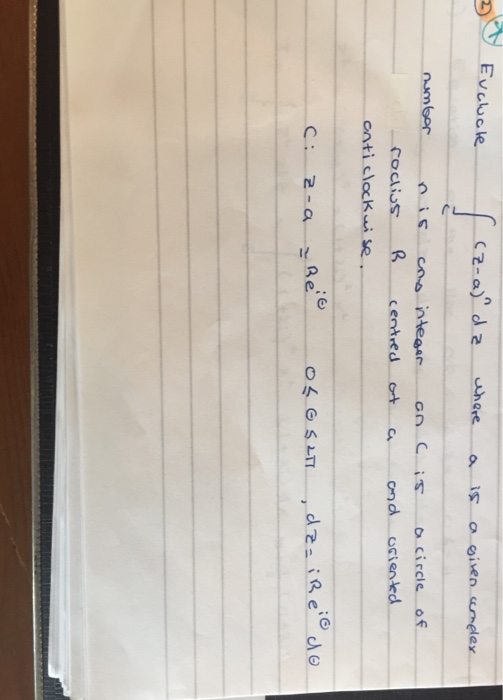 2) *
Evaluate ∫c (z-a)ⁿ dz where a is a given complex
number n is any integer an C is a circle of
radius R centred at a and oriented
anticlockwise.
C: z-a = Re^{iθ} 0≤θ≤2π, dz = iRe^{iθ}dθ